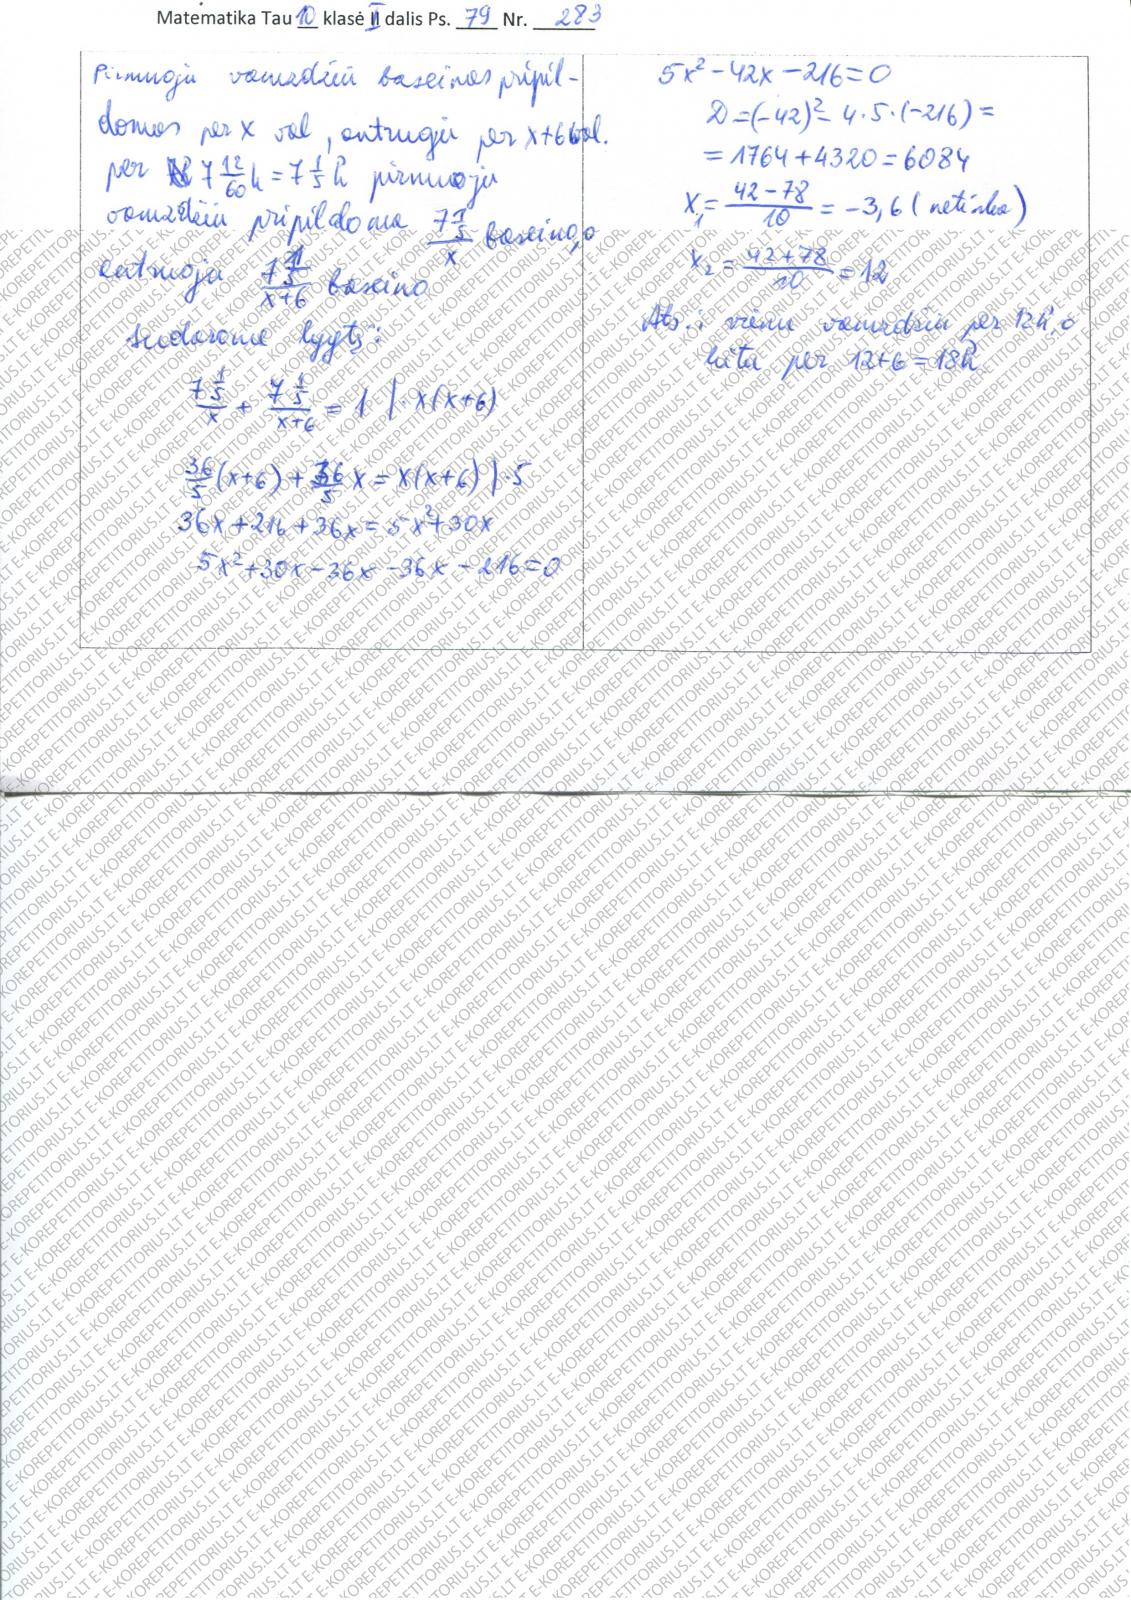 Matematika Tau 10 klasė II dalis Ps. 79 Nr. 283
Pirmuoju vamzdžiu baseinas pripil-
domas per x val, antruoju per x+6 val.
per 7 12/60 h = 7 1/5 h pirmuoju
vamzdžiu pripildoma (7 1/5)/x baseino, o
antruoju (7 1/5)/(x+6) baseino
Sudarome lygtį:
(7 1/5)/x + (7 1/5)/(x+6) = 1 | · x(x+6)
36/5 (x+6) + 36/5 x = x(x+6) | · 5
36x + 216 + 36x = 5x² + 30x
5x² + 30x - 36x - 36x - 216 = 0
5x² - 42x - 216 = 0
D = (-42)² - 4 · 5 · (-216) =
= 1764 + 4320 = 6084
x₁ = (42 - 78)/10 = -3,6 (netinka)
x₂ = (42 + 78)/10 = 12
Ats.: vienu vamzdžiu per 12h, o
kitu per 12+6 = 18h
E-KOREPETITORIUS.LT